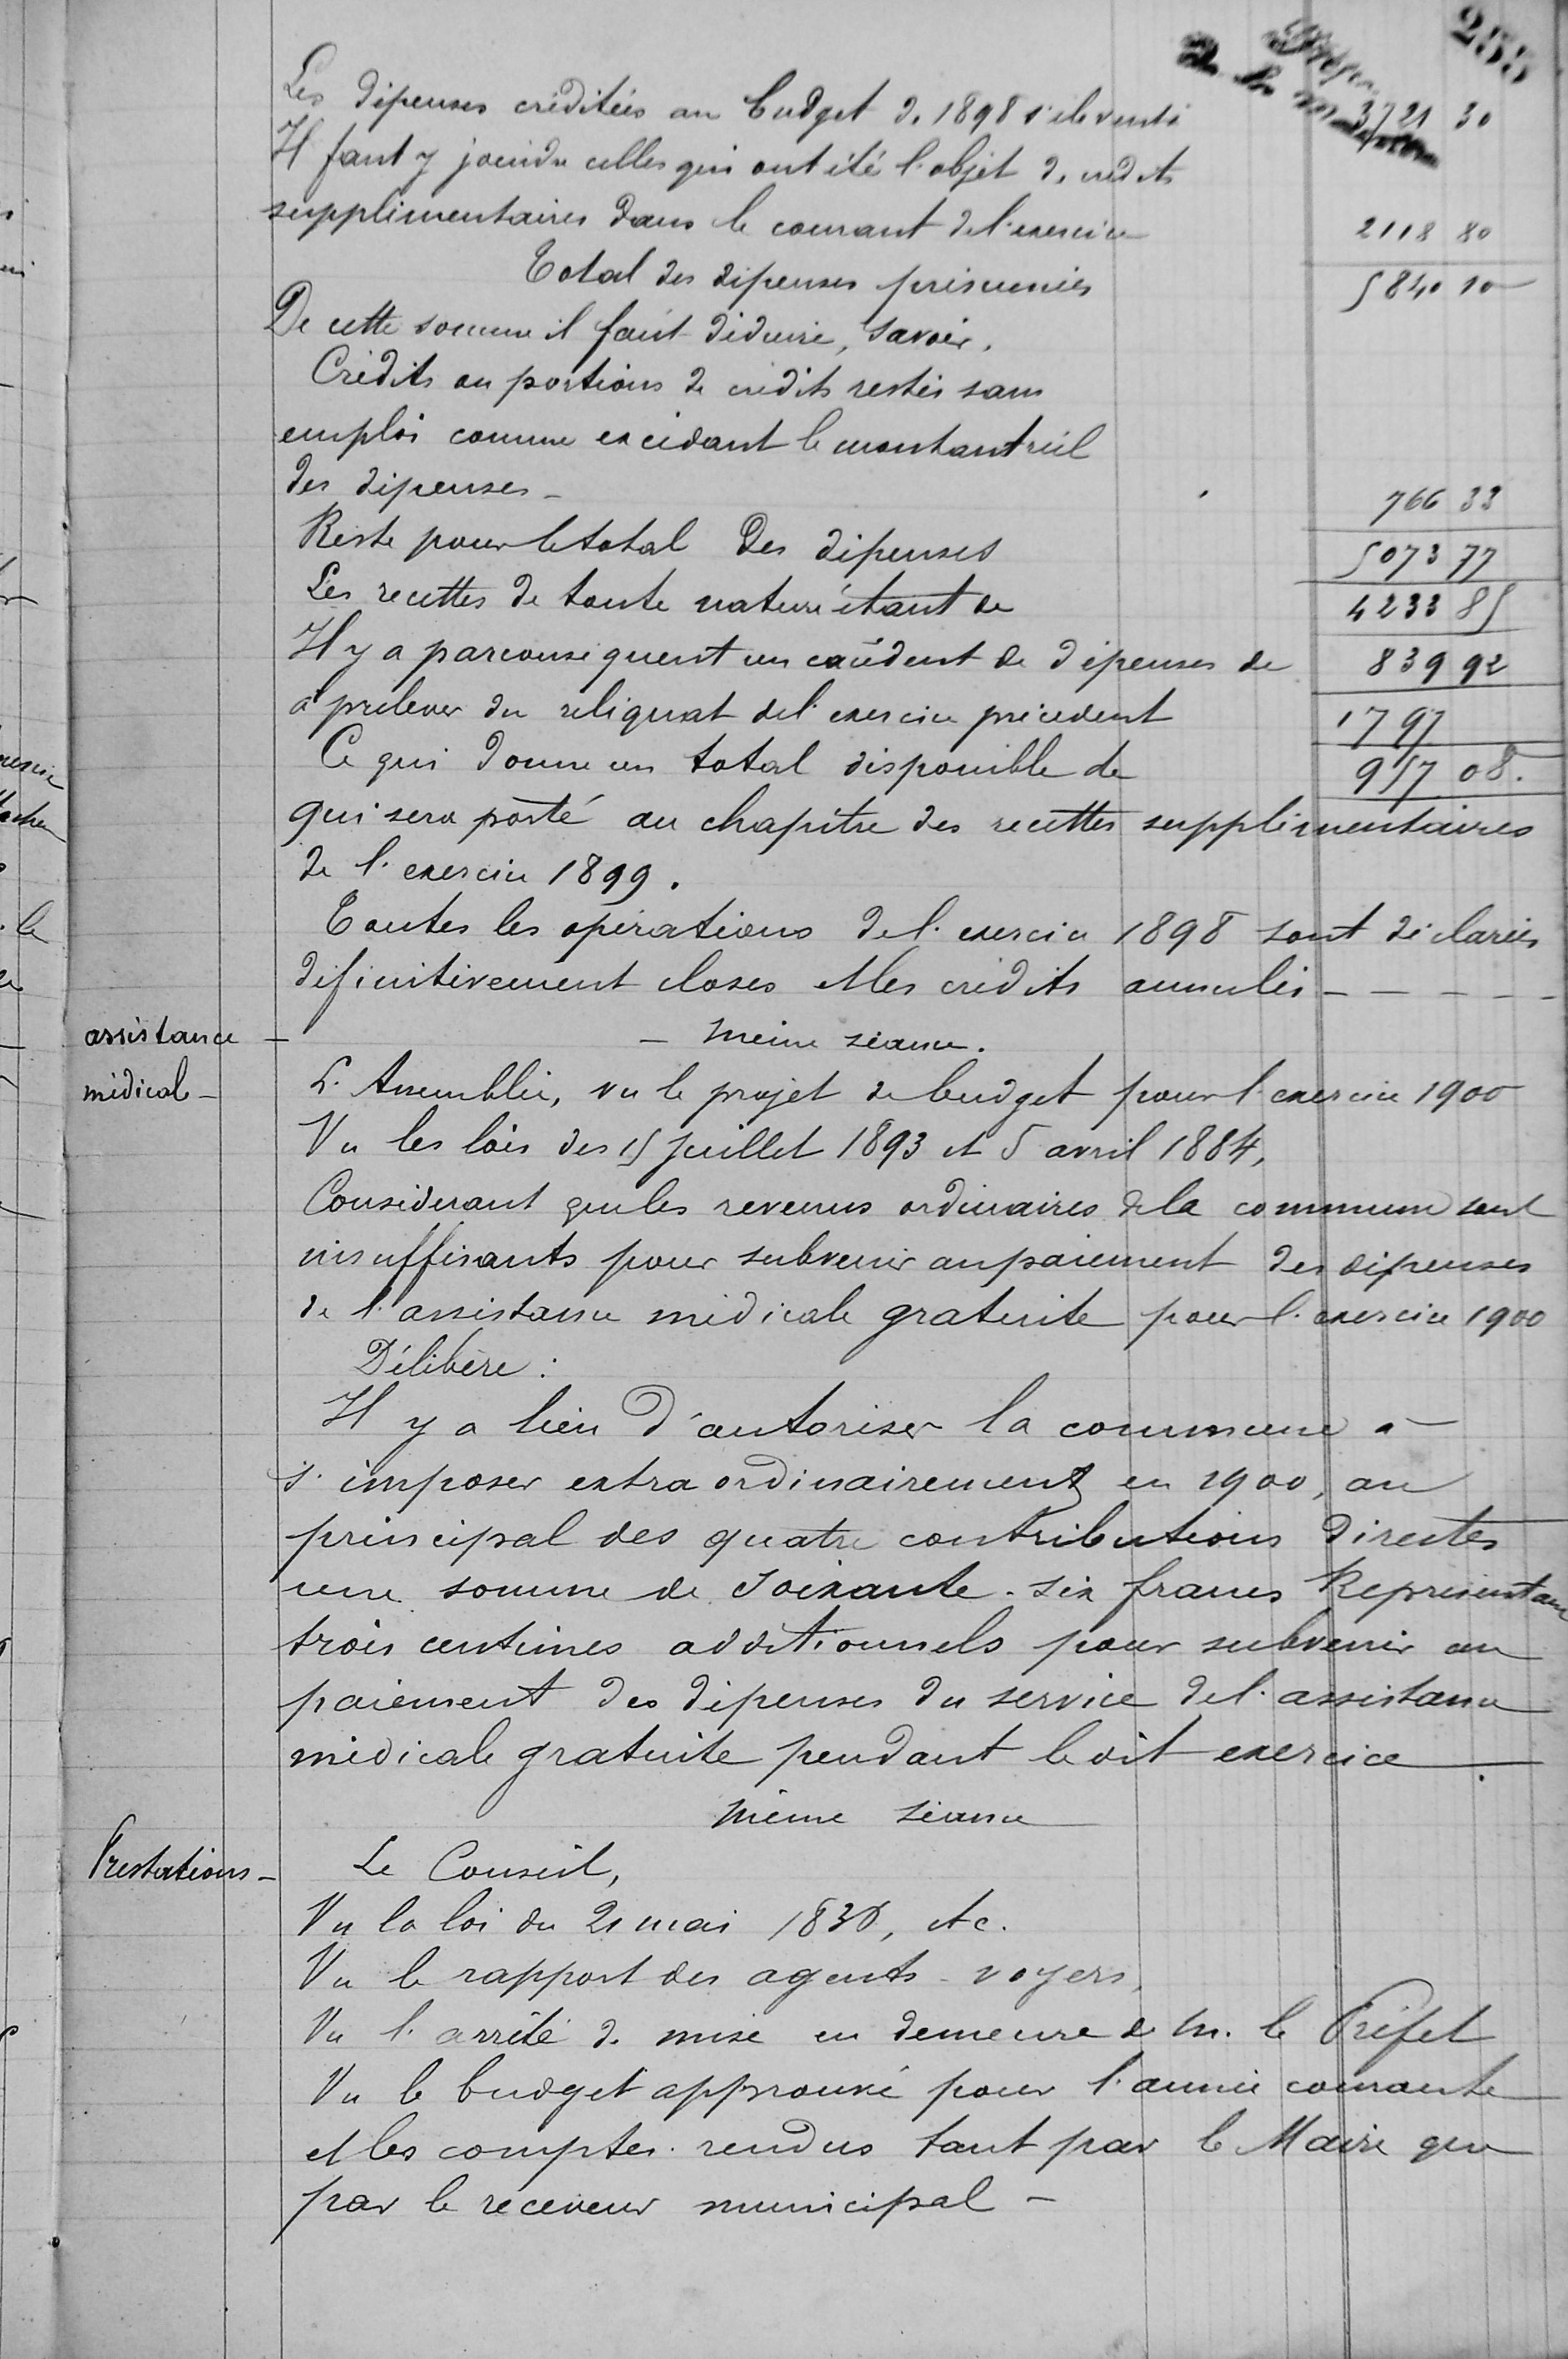 255
Les dépenses créditées au budget de 1898 s'élevent à 3721 30
Il faut y joindre celles qui ont été l'objet de crédits
supplémentaires dans le courant de l'exercice 2118 80
Total des dépenses présumées 5840 10
De cette somme il faut déduire, savoir,
Crédits ou portions de crédits restés sans
emploi comme excédant le montant réel
des dépenses - 766 33
Reste pour le total des dépenses 5073 77
Les recettes de toute nature étant de 4233 85
Il y a par conséquent un excédent de dépenses de 839 92
à prélever du reliquat de l'exercice précédent 1797
Ce qui donne un total disponible de 957 08.
qui sera porté au chapitre des recettes supplémentaires
de l'exercice 1899.
Toutes les opérations de l'exercice 1898 sont déclarées
définitivement closes et les crédits annulés - - - - -
- même séance.
assistance
médicale -
L'Assemblée, vu le projet de budget pour l'exercice 1900
Vu les lois des 15 Juillet 1893 et 5 avril 1884,
Considerant que les revenus ordinaires de la commune sont
insuffisants pour subvenir au paiement des dépenses
de l'assistance médicale gratuite pour l'exercice 1900
Délibère :
Il y a lieu d'autoriser la commune à
s'imposer extraordinairement en 1900, au
principal des quatre contributions directes
une somme de soixante-six francs Représentant
trois centimes additionnels pour subvenir au
paiement des dépenses du service de l'assistance
médicale gratuite pendant le dit exercice.
même séance
Prestations -
Le Conseil,
Vu la loi du 21 mai 1836, etc.
Vu le rapport des agents-voyers,
Vu l'arrêté de mise en demeure de M. le Préfet
Vu le budget approuvé pour l'année courante
et les comptes rendus tant par le Maire que
par le receveur municipal -